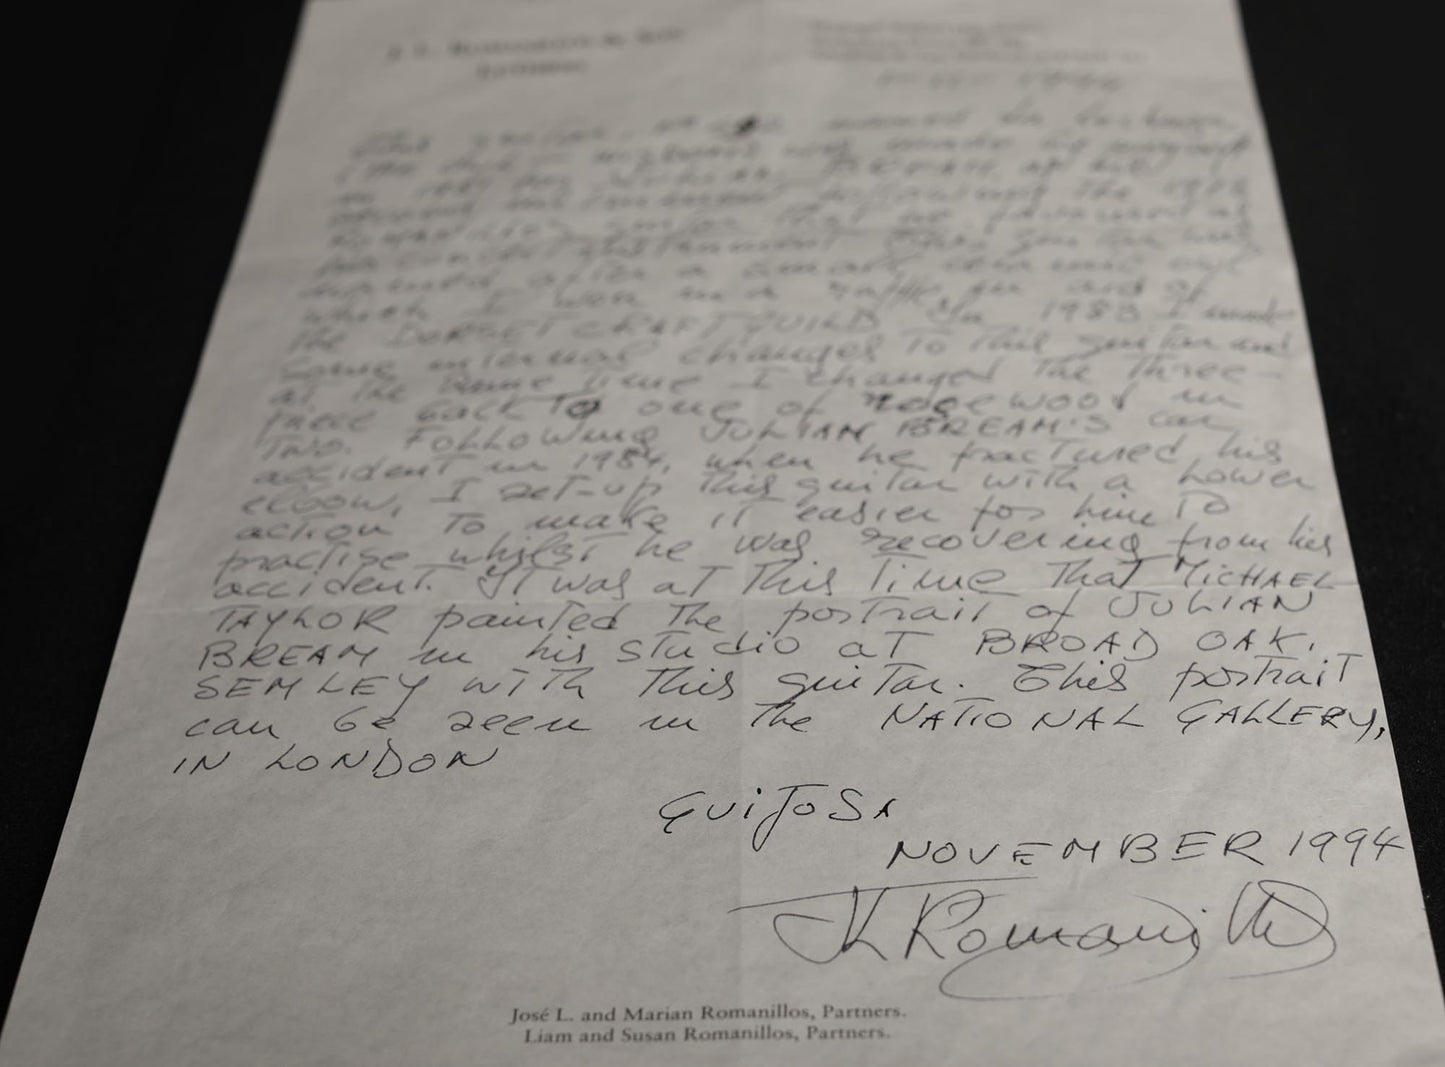 J. L. Romanillos & Son
1994
This guitar, No
was made by myself
in 1981 for Julian Bream as his
following the 1973
Romanillos guitar that he favoured as
his concert instrument.
named after a small ceramic owl
which I won in a raffle in aid of
the DORSET CRAFT GUILD. In 1983 I made
some internal changes to this guitar and
at the same time I changed the three-
piece back to one of rosewood in
two. FOLLOWING JULIAN BREAM'S car
accident in 1984, when he fractured his
elbow, I set-up this guitar with a lower
action to make it easier for him to
practise whilst he was recovering from his
accident. It was at this time that MICHAEL
TAYLOR painted the portrait of JULIAN
BREAM in his studio at BROAD OAK,
SEMLEY with this guitar. This portrait
can be seen in the NATIONAL GALLERY,
IN LONDON
GUIJOSA
NOVEMBER 1994
JL Romanillos
José L. and Marian Romanillos, Partners.
Liam and Susan Romanillos, Partners.